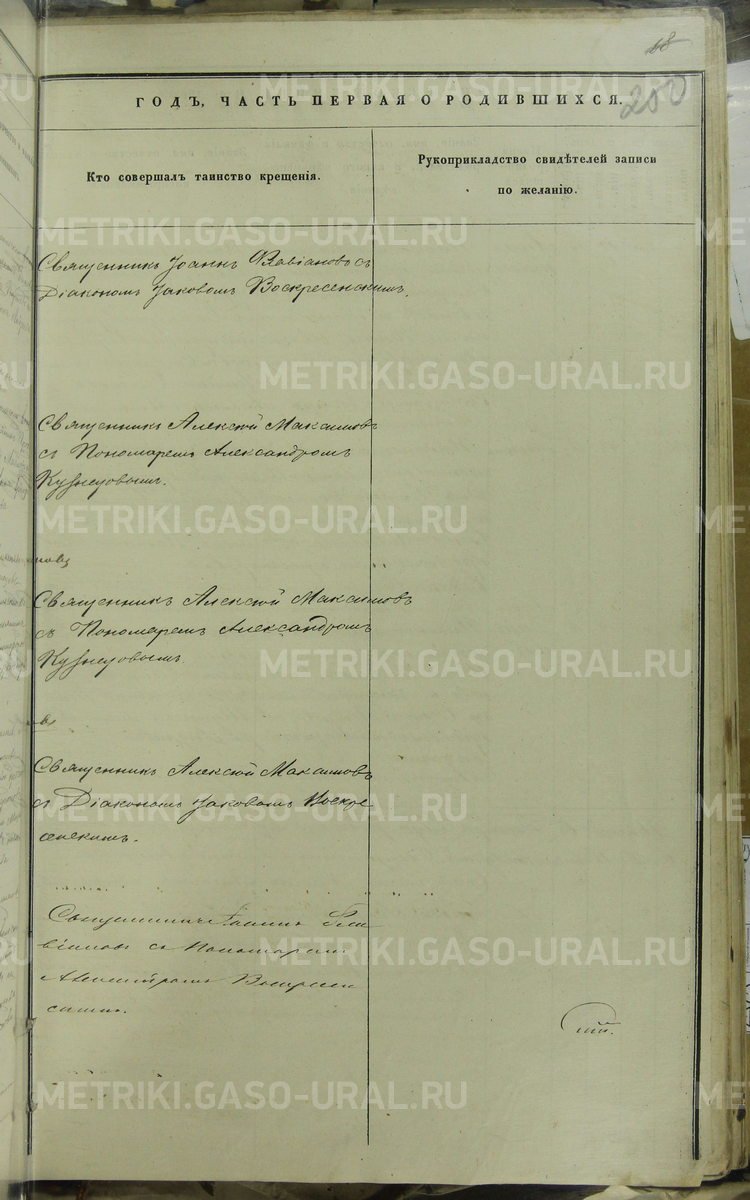 18
200
ГОДЪ, ЧАСТЬ ПЕРВАЯ О РОДИВШИХСЯ.
Кто совершалъ таинство крещенія.
Рукоприкладство свидѣтелей записи
по желанію.
Священникъ Іоаннъ Флавіановъ съ
Діакономъ Іаковомъ Воскресенскимъ.
Священникъ Алексій Максимовъ
съ Пономаремъ Александромъ
Кузнецовымъ.
Священникъ Алексій Максимовъ
съ Пономаремъ Александромъ
Кузнецовымъ.
Священникъ Алексій Максимовъ
съ Діакономъ Іаковомъ Воскре
сенскимъ.
Священникъ Іоаннъ Фла
віановъ съ Пономаремъ
Воскресен
скимъ.
METRIKI.GASO-URAL.RU
METRIKI.GASO-URAL.RU
METRIKI.GASO-URAL.RU
METRIKI.GASO-URAL.RU
METRIKI.GASO-URAL.RU
METRIKI.GASO-URAL.RU
METRIKI.GASO-URAL.RU
METRIKI.GASO-URAL.RU